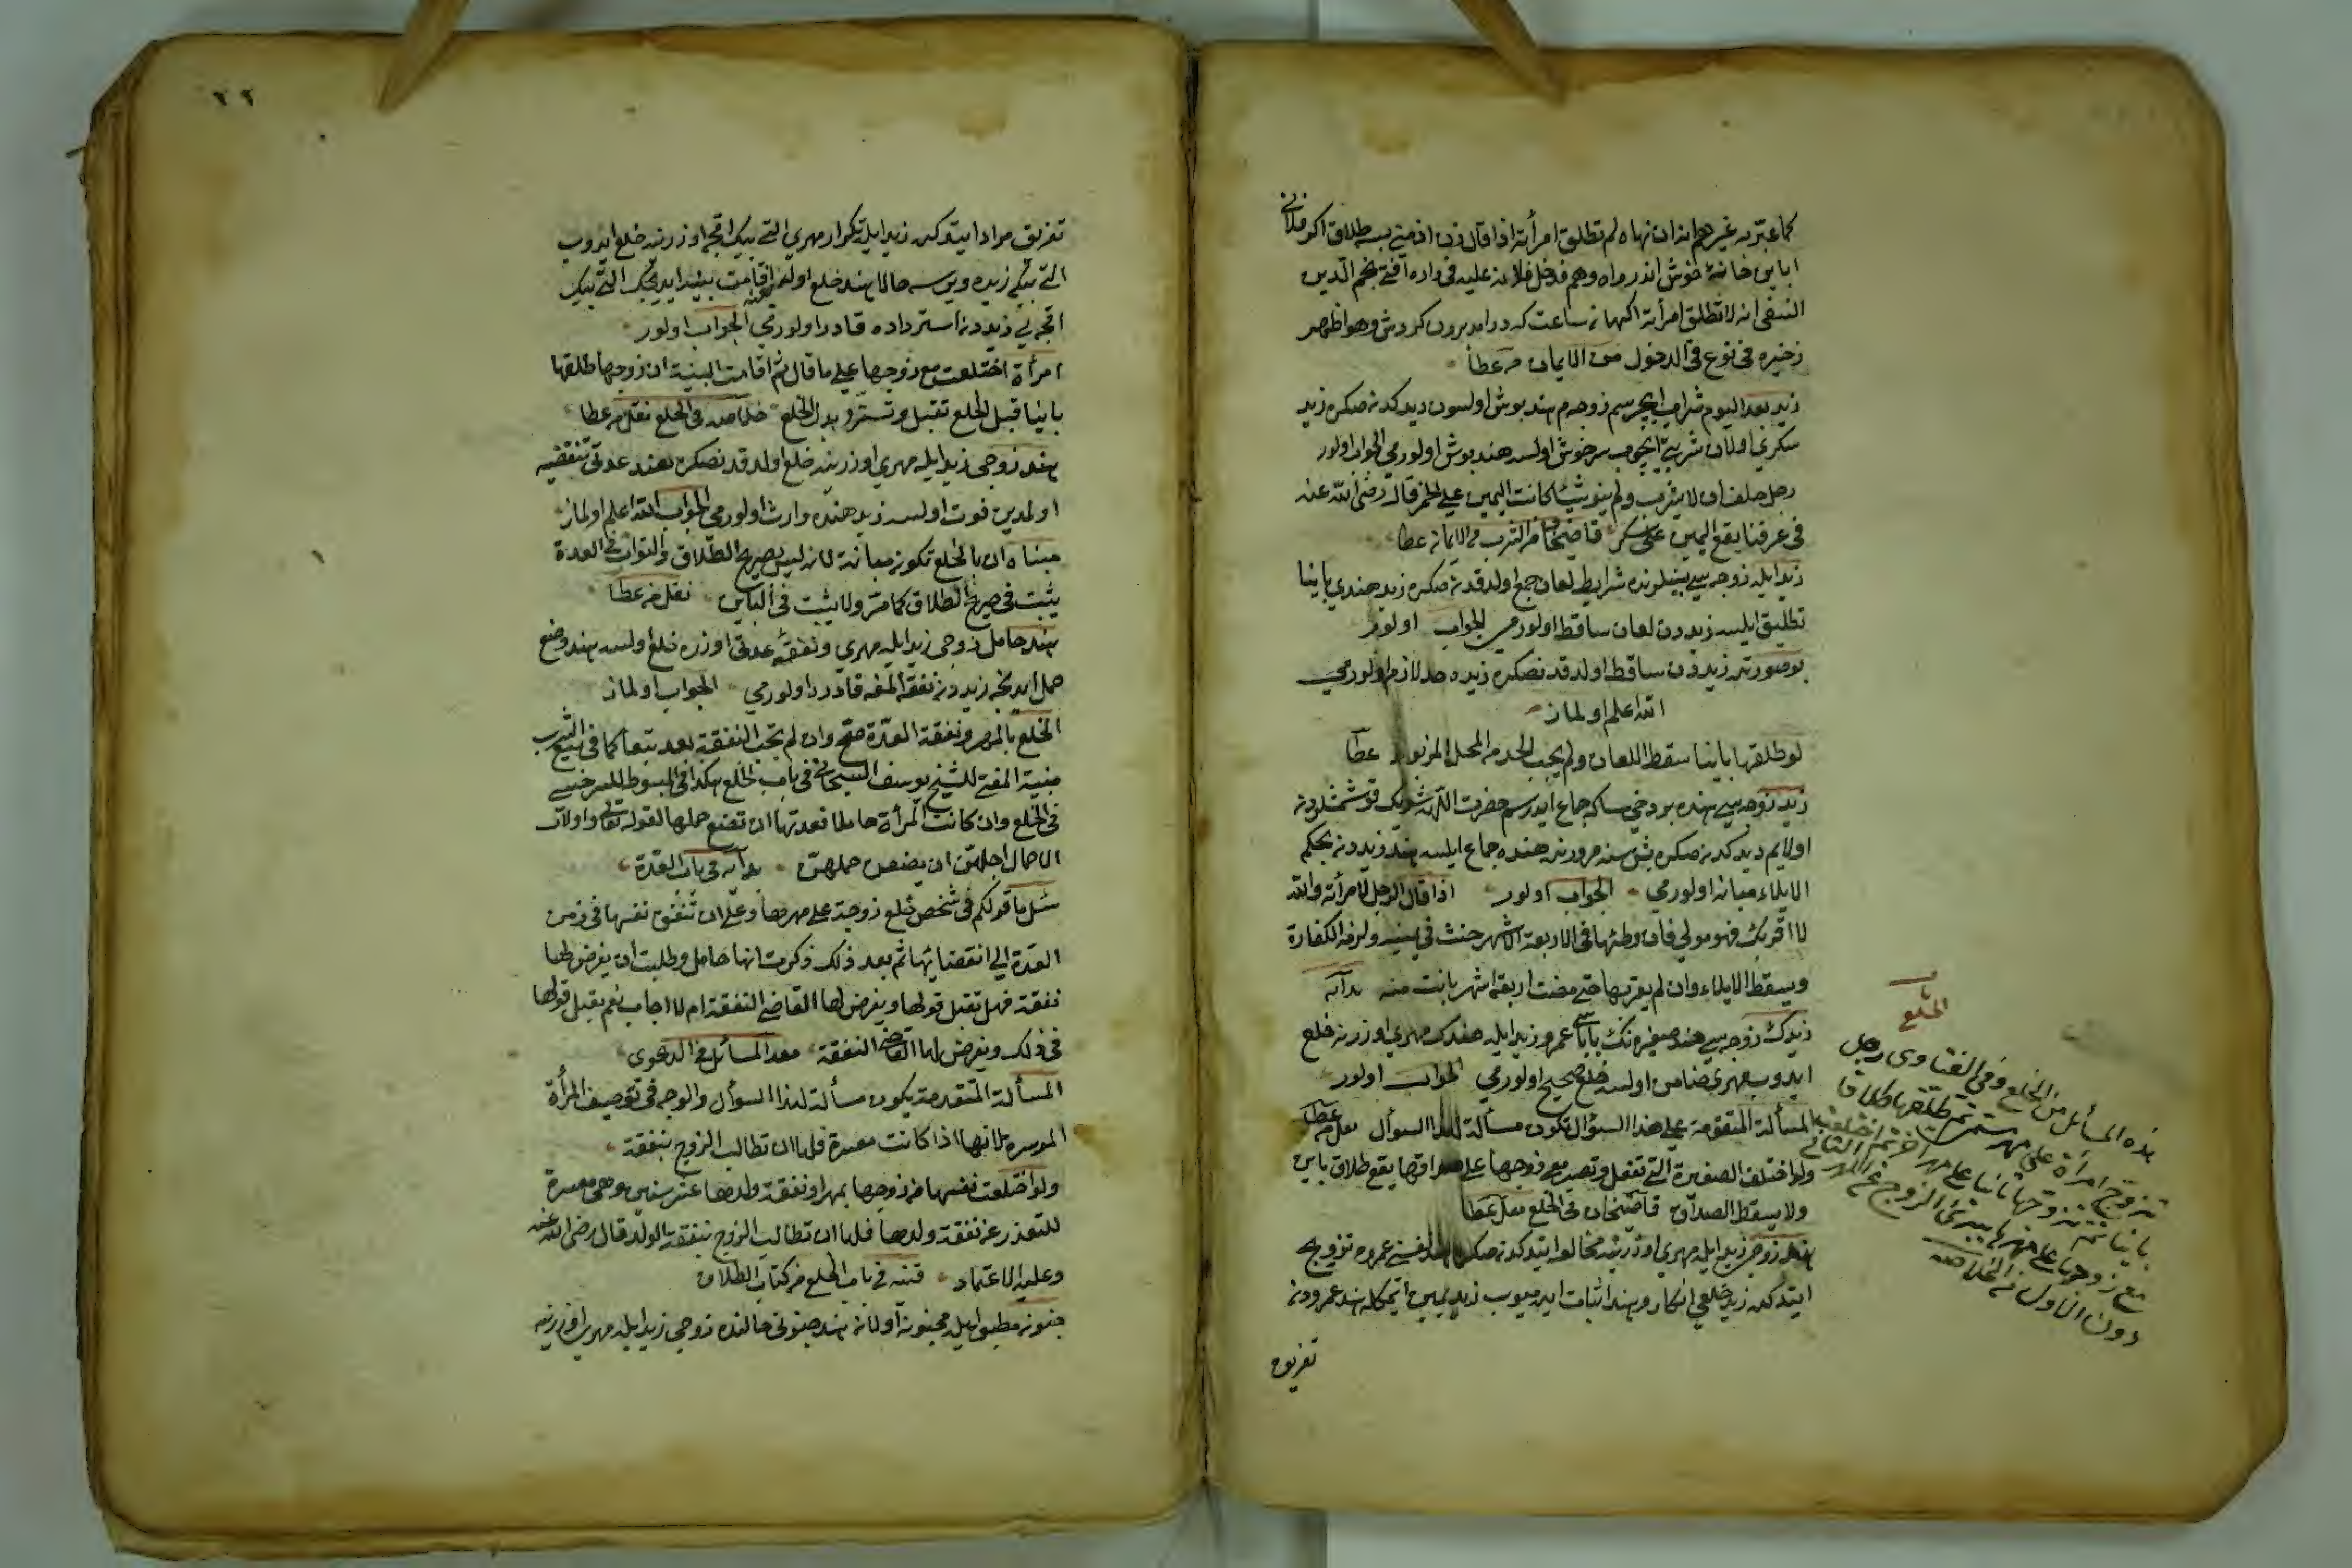 كما عبر به غيرهم انه ان نهاه لم تطلق امرأته اذا قال زن از من بسه طلاق اكر فلانی
خانهٔ خوش اندر واه وهم فدخل فلان عليه فی داره افتی نجم الدین
النسفی انه لا تطلق امرأته ساعت که در امد برون کردش وهو اظهر
ذخیره فی نوع فی الدخول من الایمان م عطا
زید بعد الیوم شراب ایچرسم زوجه م هند بوش اولسون دیدکدنصکره زید
سکری اولان شربتی ایچوب سرخوش اولسه هند بوش اولورمی الجواب اولور
رجل حلف ان لا یشرب ولم ینو شیئا کانت الیمین علی الخمر قال رضی الله عنه
فی عرفنا یقع الیمین علی کل مسکر قاضیخان من الشرب فی الایمان عطا
زید ایله زوجه سی بینلرنده شرایط لعان جمع اولدقدنصکره زید هندی باینا
تطلیق ایلسه زیددن لعان ساقط اولورمی الجواب اولور
بو صورتده زیددن ساقط اولدقدنصکره زیده حد لازم اولورمی
الله اعلم اولماز
لو طلقها باینا سقط اللعان ولم یجب الحد من المحل المزبور عطا
زید زوجه سی هنده بر دخی سکا جماع ایدرسم حضرت اللهه شریک قوشمشلردن
اولایم دیدکدنصکره بش سنه مرورنده هنده جماع ایلسه هند زیددن بحکم
الایلاء مبانه اولورمی الجواب اولور اذا قال الرجل لامرأته والله
لا اقربک فهو مولی فان وطئها فی الاربعة الاشهر حنث فی یمینه ولزمه الکفارة
ویسقط الایلاء وان لم یقربها حتی مضت اربعة اشهر بانت منه هدایه
زیدک زوجه سی هند صغیره نک باباسی عمرو زید ایله هندک مهری اوزرنه خلع
ایدوب مهری ضامن اولسه خلع صحیح اولورمی الجواب اولور
المسألة المتقومة علی هذا السؤال تکون مسألة لهذا السوال نقل م عطا
ولو اختلعت الصغیرة التی تعقل وتصدر مع زوجها علی صداقها یقع طلاق باین
ولا یسقط الصداق قاضیخان فی الخلع نقل عطا
هند زوجی زید ایله مهری اوزرینه مخالعه ایتدکدنصکره هند نفسنی عمروه تزویج
ایتدکده زید خلعی انکار وهند اثبات ایدمیوب زید یمین اتمکله هند عمرودن
تفریق
باب
الخلع
هذه المسائل من الخلع وفی الفتاوی رجل
تزوج امرأة علی مهر مسمی ثم طلقها طلاقا
باینا ثم تزوجها ثانیا علی مهر اخر ثم اختلعت
مع زوجها علی مهرها یبرئ الزوج عن المهر الثانی
دون الاول من الخلاصه
٦٦
تفریق مراد ایتدکده زید ایله تکرار مهری التی بیک اقچه اوزرینه خلع ایدوب
التی بیکی زیده ویرسه حالا هند خلع اولمزدن اقامت بینه ایدیجک التی بیک
اقچه یی زیددن استرداده قادر اولورمی الجواب اولور
امرأة اختلعت مع زوجها علی ما قال ثم اقامت البینة ان زوجها طلقها
باینا قبل الخلع تقبل وتسترد بدل الخلع خلاصه فی الخلع نقل م عطا
هند زوجی زید ایله مهری اوزرینه خلع اولدقدنصکره هند عدتی منقضیه
اولمدین فوت اولسه زید هنده وارث اولورمی الجواب الله اعلم اولماز
مبناه ان بالخلع تکون مبانة لانه لیس بصریح الطلاق والتوارث فی العدة
یثبت فی صریح الطلاق کما مر ولا یثبت فی الباین نقل م عطا
هند حامل زوجی زید ایله مهری ونفقهٔ عدتی اوزره خلع اولسه هند وضع
حمل ایدنجه زیددن نفقه المغه قادره اولورمی الجواب اولماز
الخلع بالمهر ونفقة العدة صح وان لم تجب النفقة بعد تبعا کما فی بیع الشرب
منیة المفتی للشیخ یوسف السجستانی فی باب الخلع هکذا فی المبسوط للسرخسی
فی الخلع وان کانت المرأة حاملا فعدتها ان تضع حملها لقوله تعالی واولات
الاحمال اجلهن ان یضعن حملهن هدایه فی باب العدة
سئل ما قولکم فی شخص خلع زوجته علی مهرها وعلی ان تنفق نفسها فی زمن
العدة الی انقضائها ثم بعد ذلک ذکرت انها حامل وطلبت ان یفرض لها
نفقة فهل تقبل قولها ویفرض لها القاضی النفقة ام لا اجاب نعم یقبل قولها
فی ذلک ویفرض لها القاضی النفقة معد المسائل فی الدعوی
المسألة المتقدمة یکون مسألة لهذا السؤال والوجه فی توصیف المرأة
الموسره لانها اذا کانت معسرة فلها ان تطالب الزوج بنفقة
ولو اختلعت نفسها من زوجها بمهرها ونفقة ولدها عشر سنین وهی معسرة
للتعذر عن نفقة ولدها فلها ان تطالب الزوج بنفقة الولد قال رضی الله عنه
وعلیه الاعتماد قنیه فی باب الخلع من کتاب الطلاق
جنون مطبق ایله مجنونه اولان هند جنونی حالنده زوجی زید ایله مهری اوزرینه